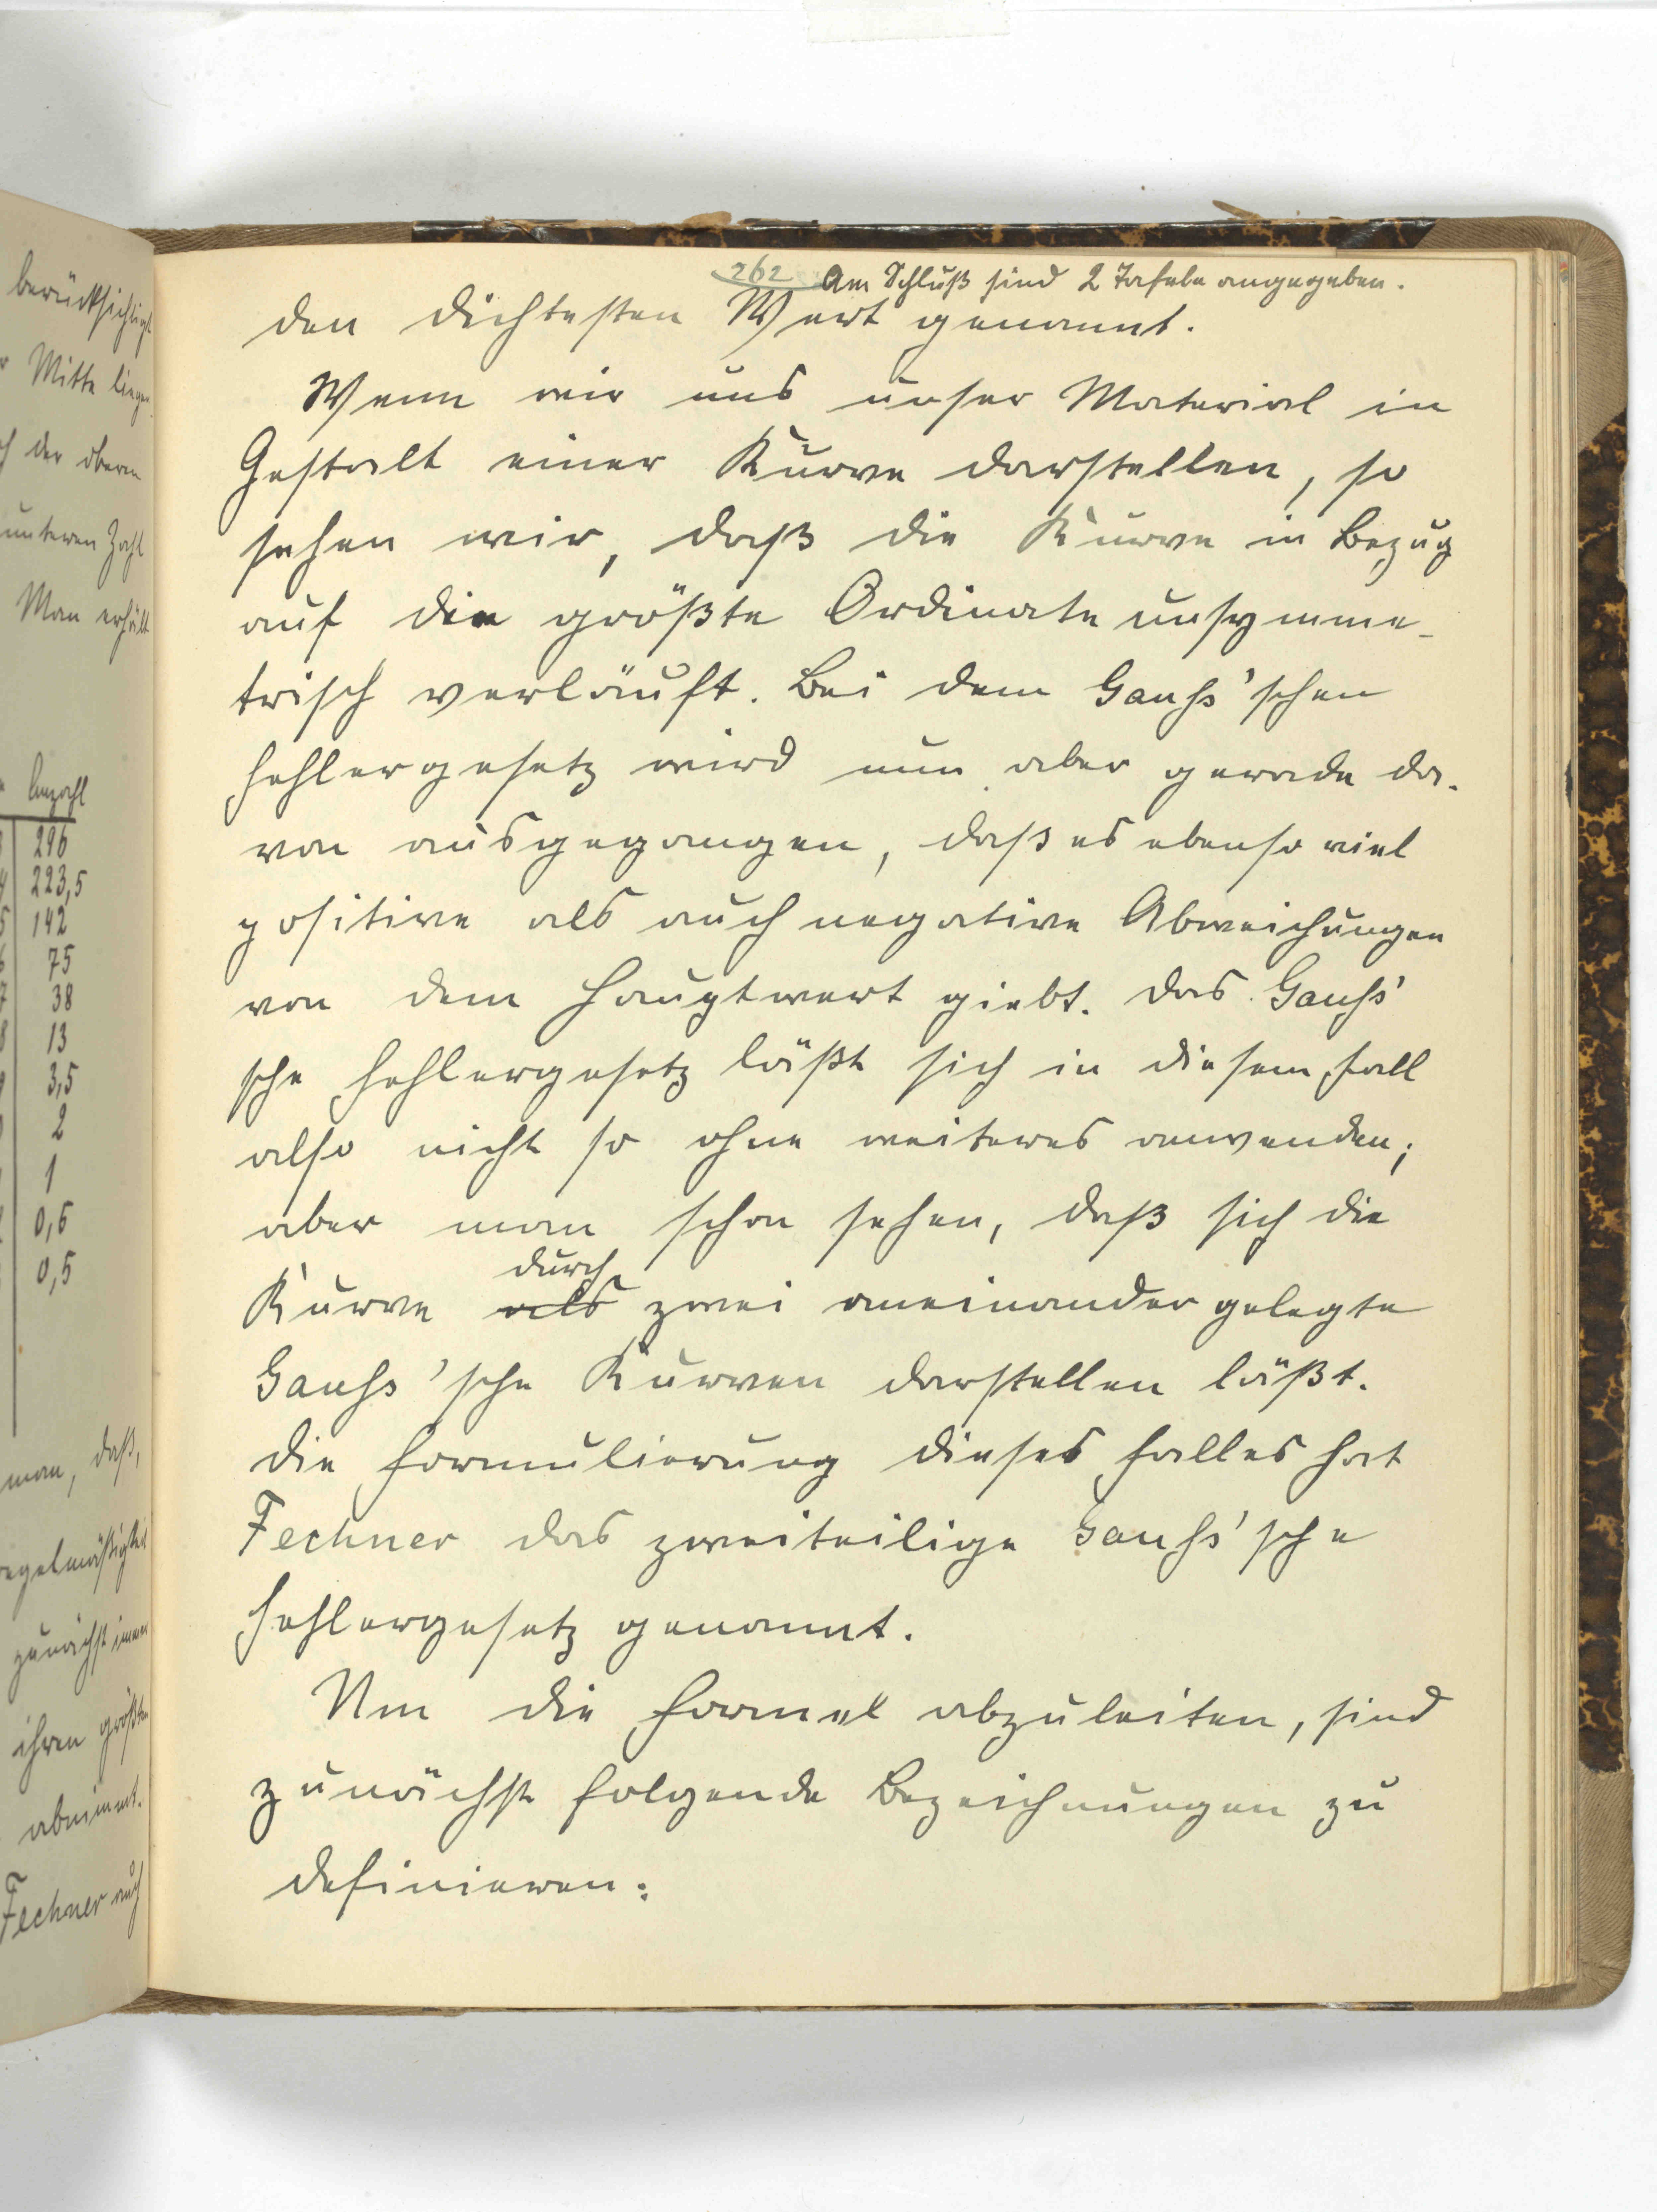 berücksichtigt
Mitte liegen
der oberen
unteren Zahl
Man erhält
Anzahl
296
223,5
142
75
38
13
3,5
2
1
0,5
man, daß,
zunächst immer
ihren größten
abnimmt.
Fechner auch
262 Am Schluß sind 2 Tafeln angegeben.
den dichtesten Wert genannt.
Wenn wir uns unser Material in
Gestalt einer Kurve darstellen, so
sehen wir, daß die Kurve in Bezug
auf die größte Ordinate unsymme-
trisch verläuft. Bei dem Gauss'schen
Fehlergesetz wird nun aber gerade da-
von ausgegangen, daß es ebenso viel
positive als auch negative Abweichungen
von dem Hauptwert giebt. Das Gauss'
sche Fehlergesetz läßt sich in diesem Fall
also nicht so ohne weiteres anwenden;
aber man schon sehen, daß sich die
durch
Kurve als zwei aneinander gelegte
Gauss'sche Kurven darstellen läßt.
Die Formulierung dieses Falles hat
Fechner das zweiteilige Gauss'sche
Fehlergesetz genannt.
Um die Formel abzuleiten, sind
zunächst folgende Bezeichnungen zu
definieren: